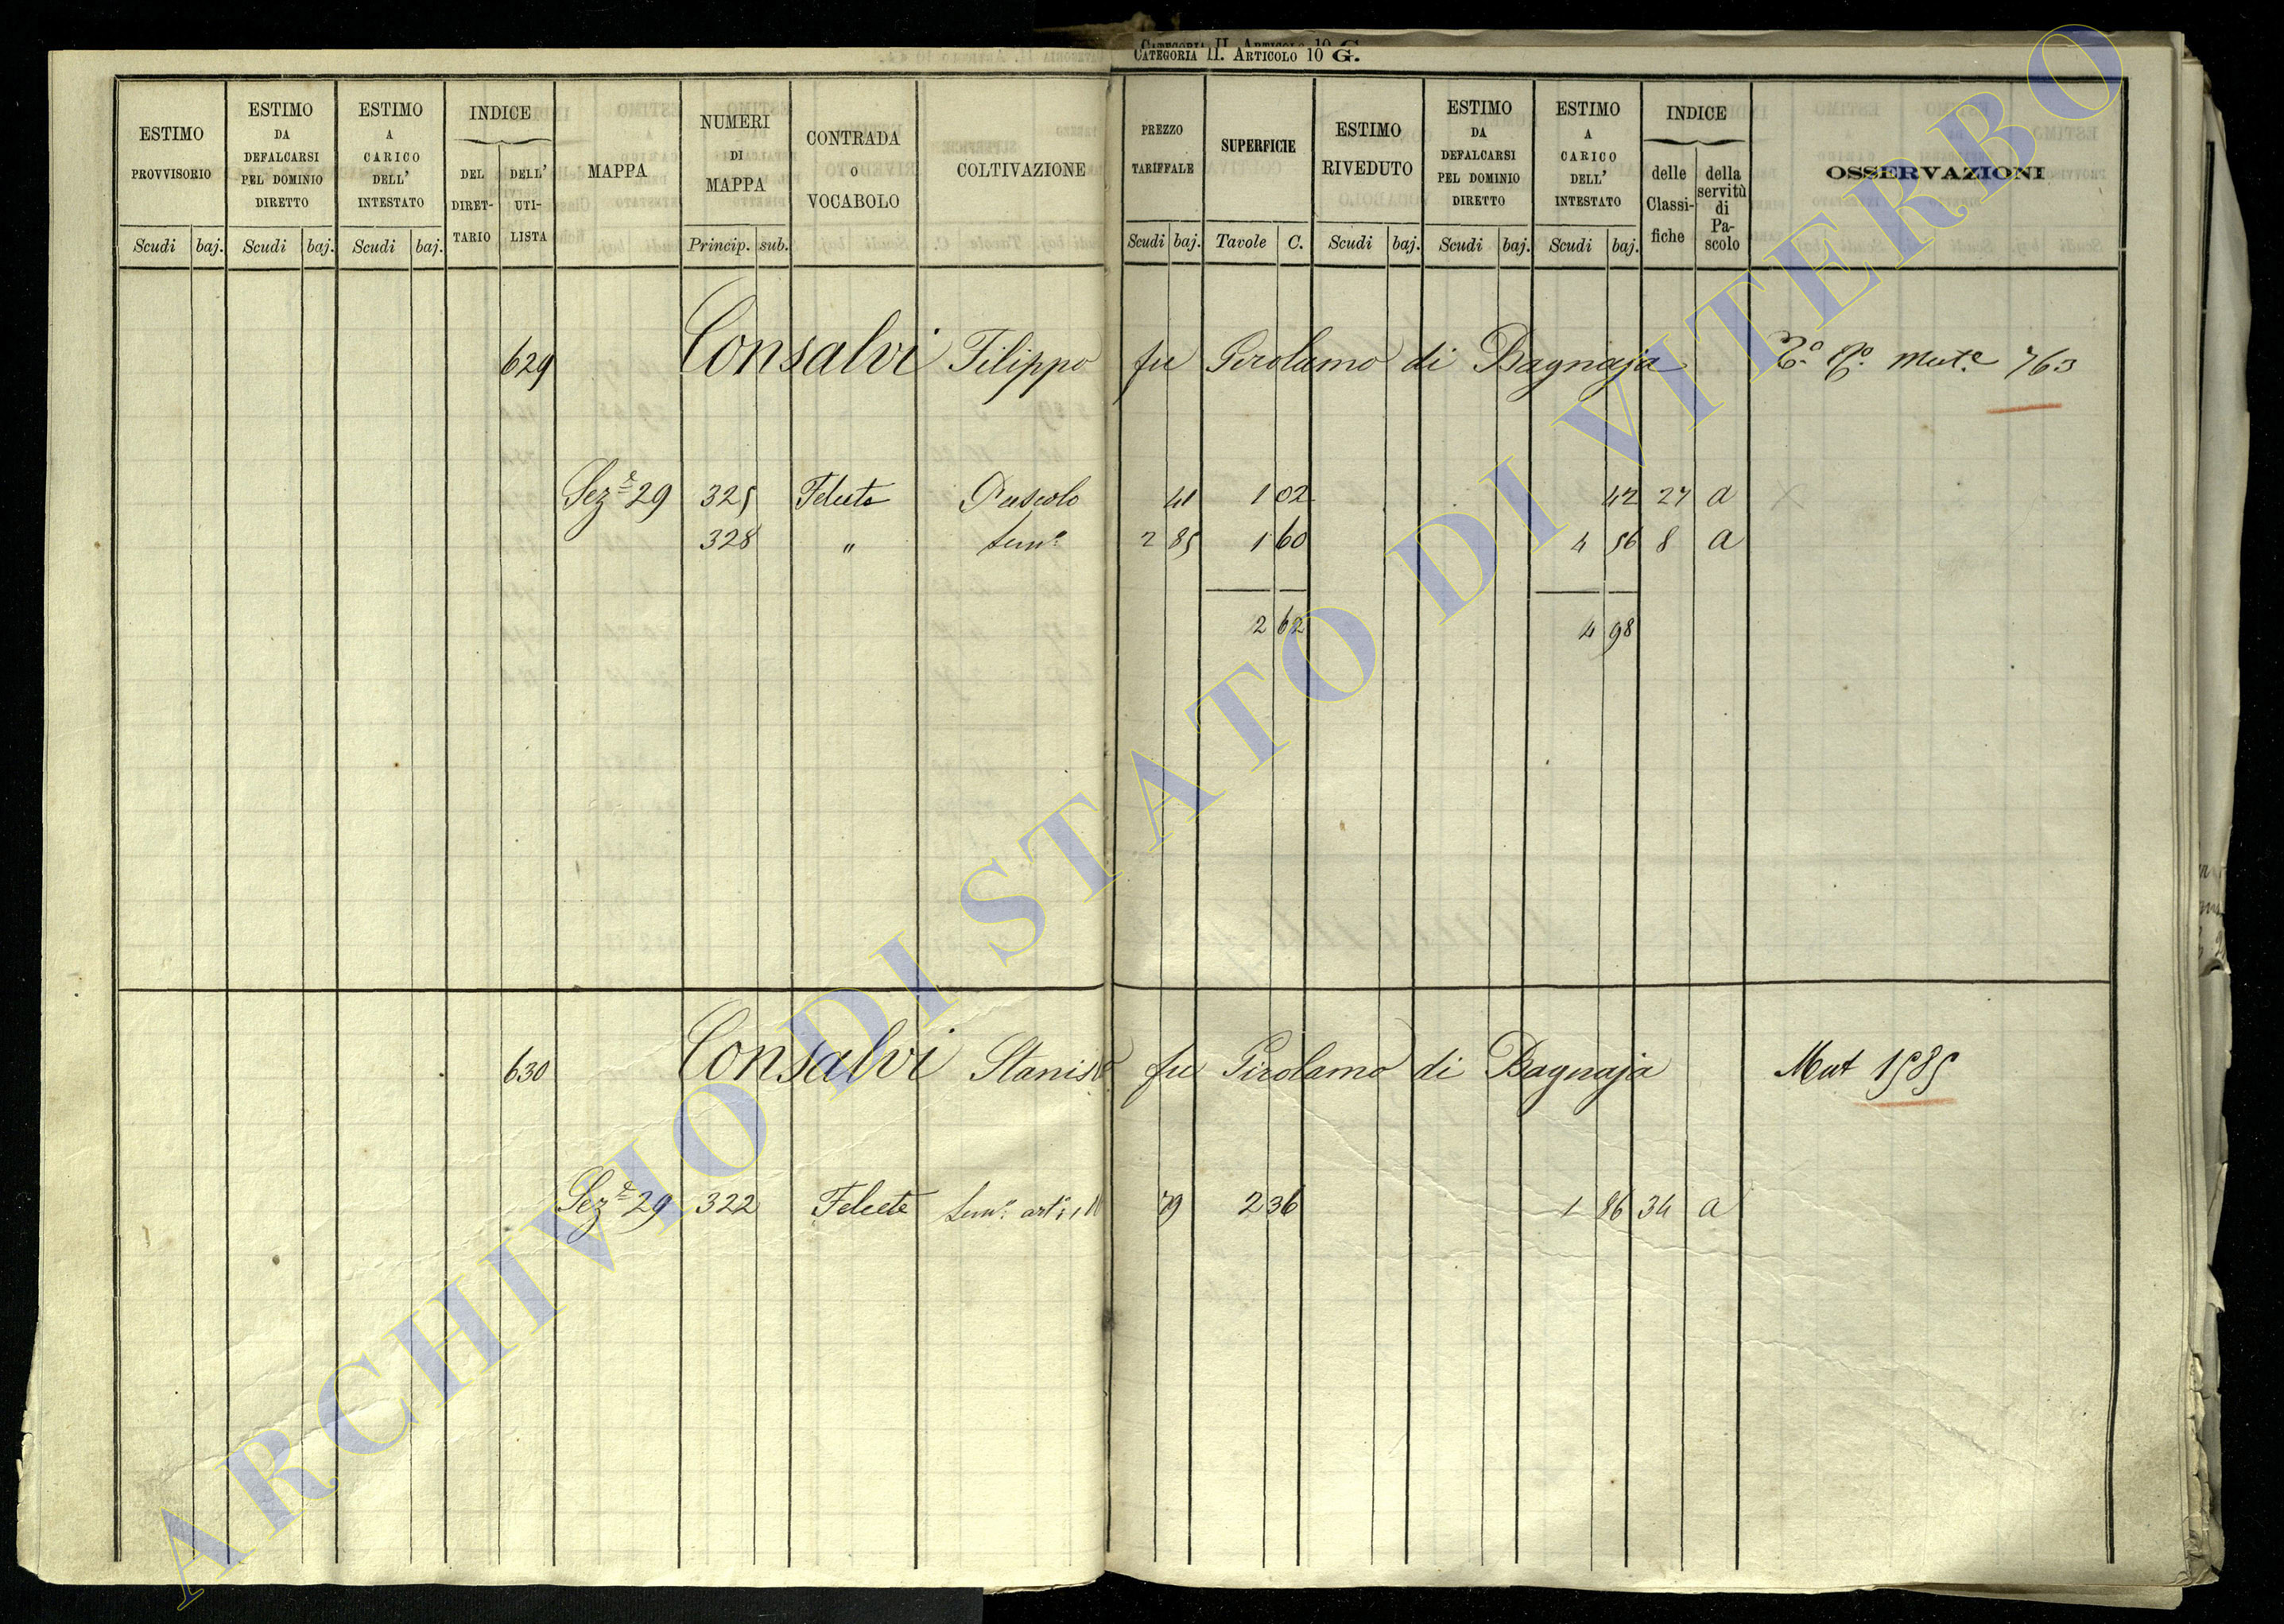 CATEGORIA II. ARTICOLO 10 G.
ESTIMO PROVVISORIO
Scudi baj.
ESTIMO DA DEFALCARSI PEL DOMINIO DIRETTO
Scudi baj.
ESTIMO A CARICO DELL' INTESTATO
Scudi baj.
INDICE
DEL DIRET-TARIO
DELL' UTI-LISTA
MAPPA
NUMERI DI MAPPA
Princip. sub.
CONTRADA O VOCABOLO
COLTIVAZIONE
PREZZO TARIFFALE
Scudi baj.
SUPERFICIE
Tavole C.
ESTIMO RIVEDUTO
Scudi baj.
ESTIMO DA DEFALCARSI PEL DOMINIO DIRETTO
Scudi baj.
ESTIMO A CARICO DELL' INTESTATO
Scudi baj.
INDICE
delle Classi-fiche
della servitù di Pa-scolo
OSSERVAZIONI
629 Consalvi Filippo fu Girolamo di Bagnaja Mute 763
Seze 29 325 Felcete Pascolo 41 1 02 42 27 a
328 " Semo 2 85 1 60 4 56 8 a
2 62 4 98
630 Consalvi Staniso fu Girolamo di Bagnaja Mut 1585
Seze 29 322 Felcete Semo 79 2 36 1 86 34 a
ARCHIVIO DI STATO DI VITERBO